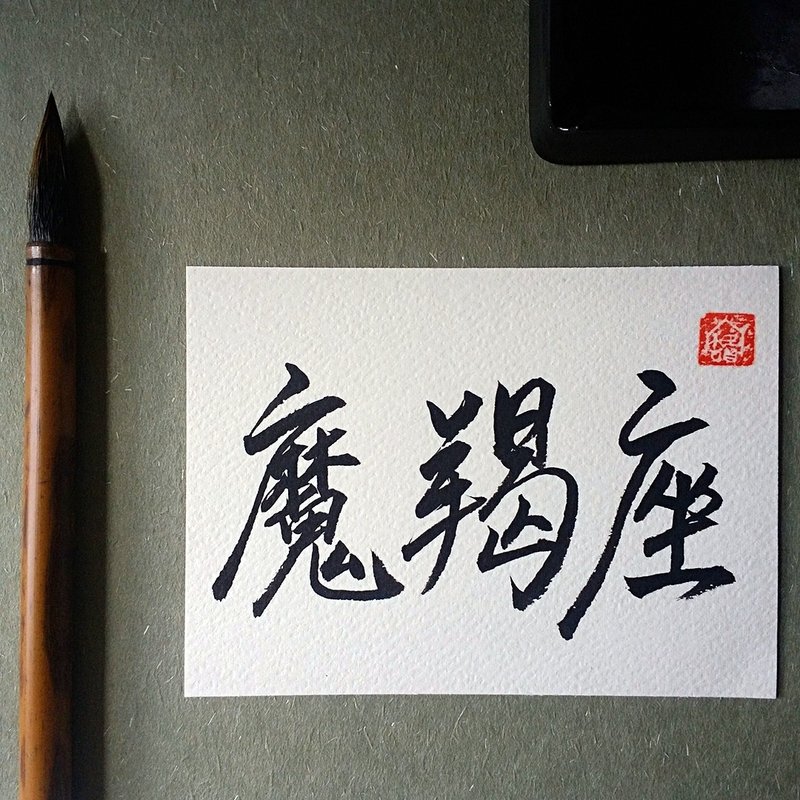 魔羯座